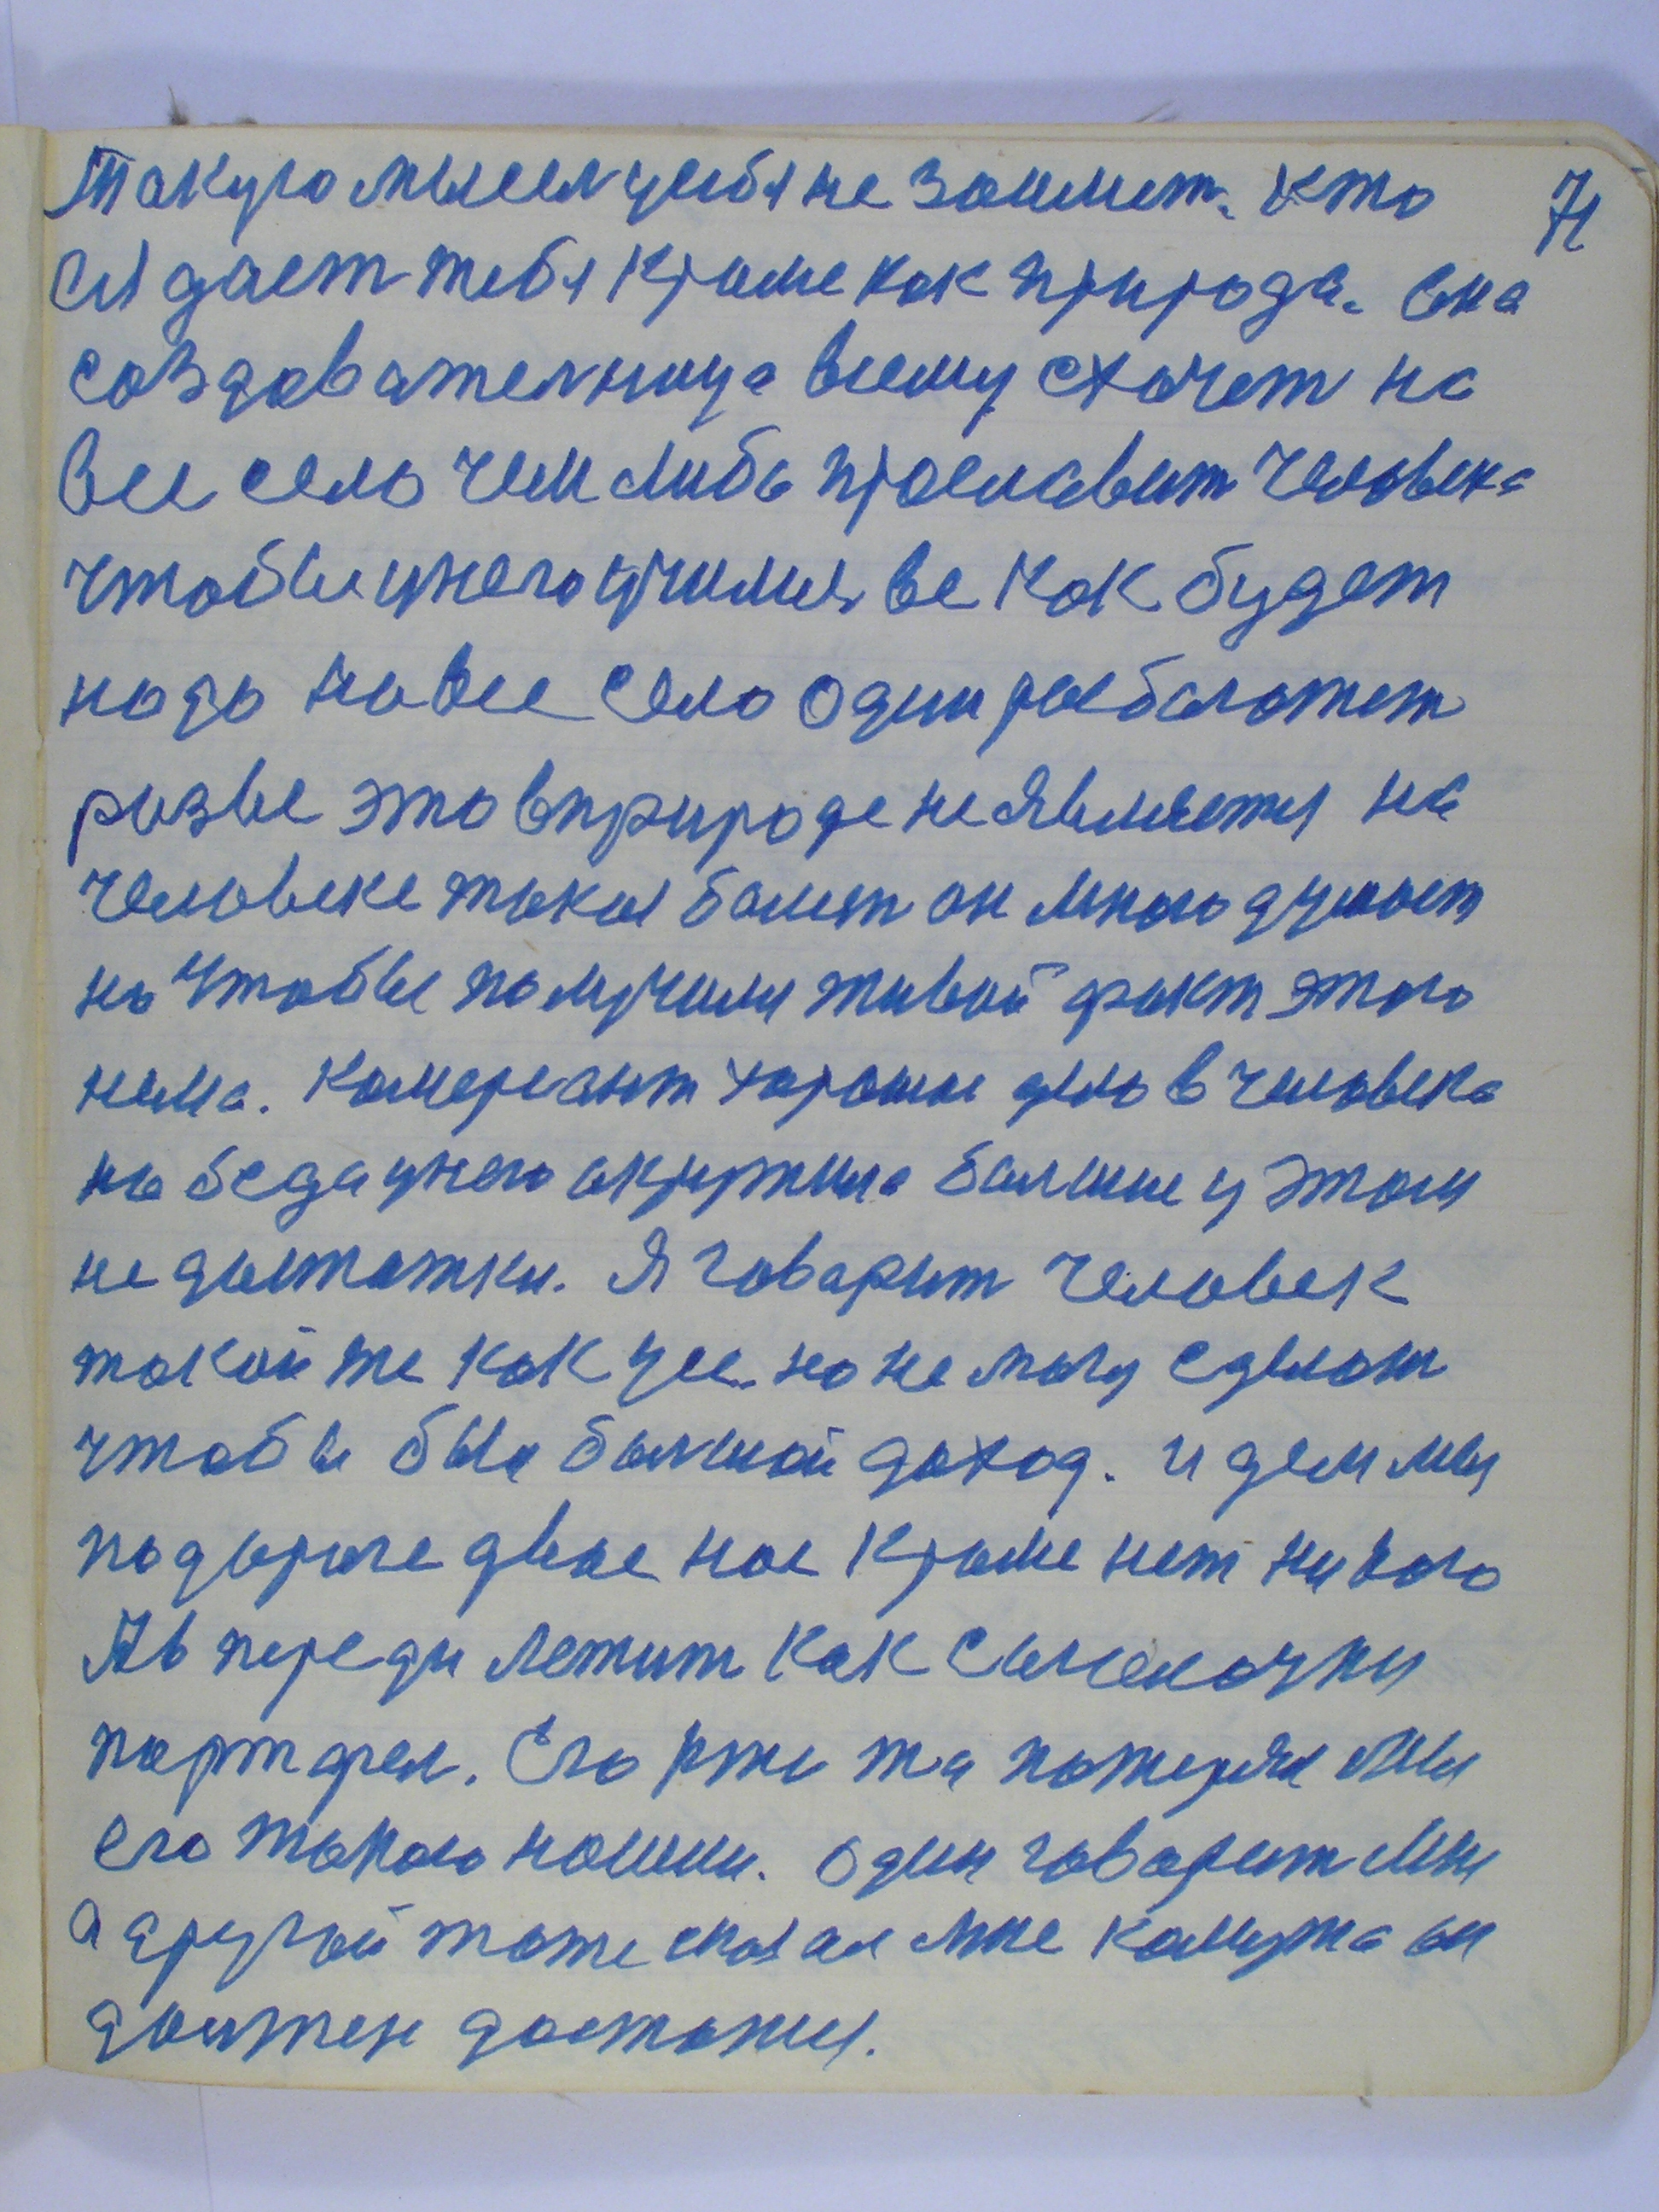 Такую мысел у себя не займет. кто 71
ея дает тебя кроме как природа. Она
создавателница всему схочет на
все село чем либо прославит человека
чтобы унего училися ве как будет
надо на все село один разбагатет
разве это вприроде не является на
человеке такая болет он много думает
но чтобы получили живой факт этого
нима. Камерсант хороши дело в человека
но беда унего окружила болшие у этом
не достатки. Я говарит человек
такой же как усе. но не могу сделат
чтобы был болшой доход. идем мы
подороге двое нас кроме нет никого
А в переди лежит как
портфел. Его кто та потерял мы
его такого нашли. один говарит мне
а другой тоже сказал мне камужа он
должен достатся.